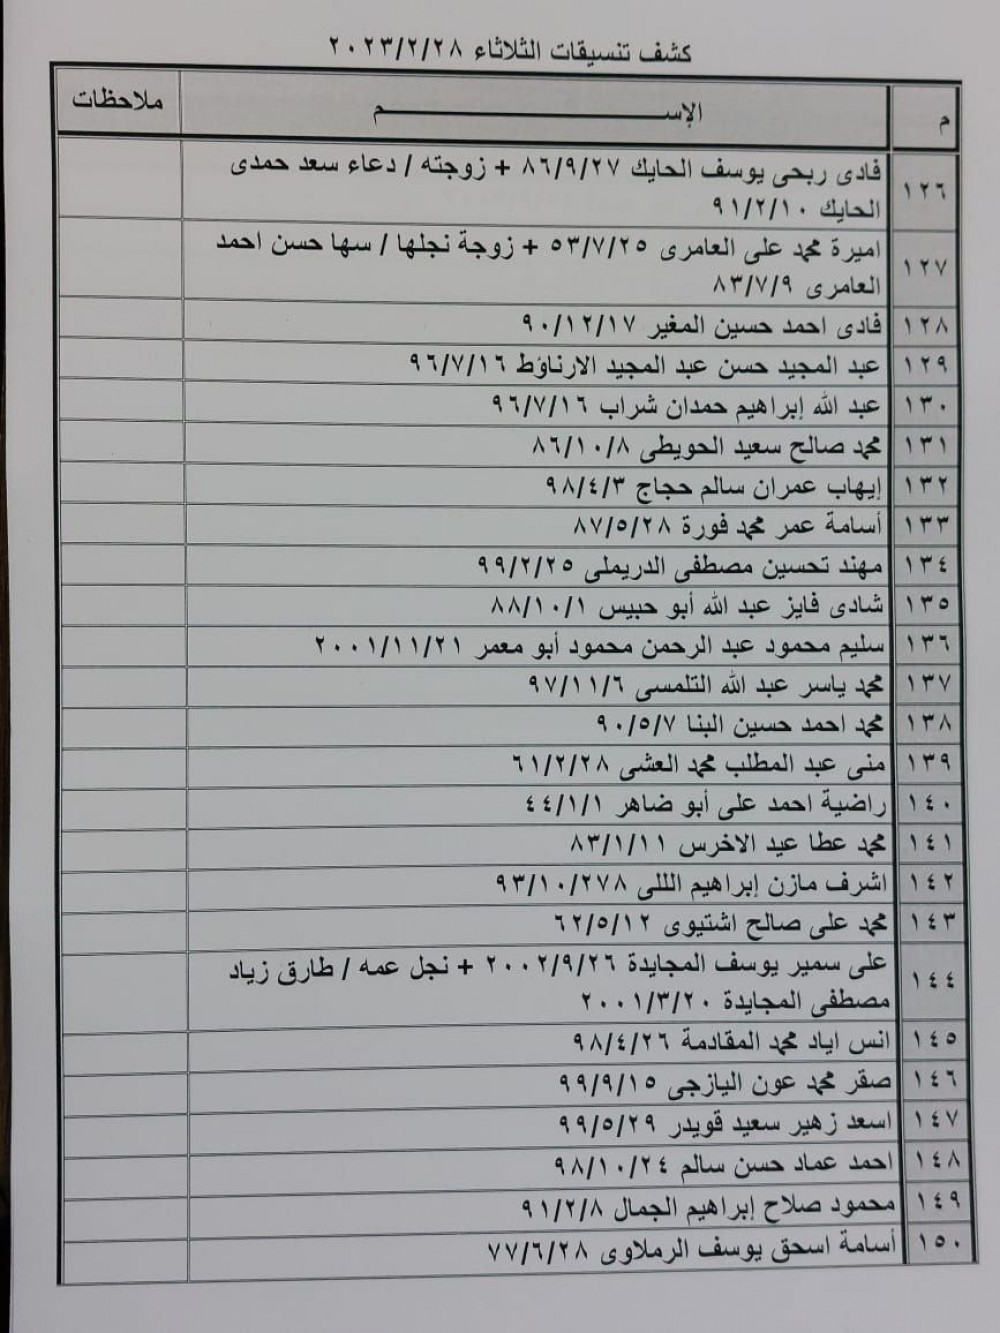 كشف تنسيقات الثلاثاء ٢٠٢٣/٢/٢٨
م الإســـــــــــــــم ملاحظات
١٢٦ فادى ربحى يوسف الحايك ٨٦/٩/٢٧ + زوجته / دعاء سعد حمدى
الحايك ٩١/٢/١٠
١٢٧ اميرة محمد على العامرى ٥٣/٧/٢٥ + زوجة نجلها / سها حسن احمد
العامرى ٨٣/٧/٩
١٢٨ فادى احمد حسين المغير ٩٠/١٢/١٧
١٢٩ عبد المجيد حسن عبد المجيد الارناؤط ٩٦/٧/١٦
١٣٠ عبد الله إبراهيم حمدان شراب ٩٦/٧/١٦
١٣١ محمد صالح سعيد الحويطى ٨٦/١٠/٨
١٣٢ إيهاب عمران سالم حجاج ٩٨/٤/٣
١٣٣ أسامة عمر محمد فورة ٨٧/٥/٢٨
١٣٤ مهند تحسين مصطفى الدريملى ٩٩/٢/٢٥
١٣٥ شادى فايز عبد الله أبو حبيس ٨٨/١٠/١
١٣٦ سليم محمود عبد الرحمن محمود أبو معمر ٢٠٠١/١١/٢١
١٣٧ محمد ياسر عبد الله التلمسى ٩٧/١١/٦
١٣٨ محمد احمد حسين البنا ٩٠/٥/٧
١٣٩ منى عبد المطلب محمد العشى ٦١/٢/٢٨
١٤٠ راضية احمد على أبو ضاهر ٤٤/١/١
١٤١ محمد عطا عيد الاخرس ٨٣/١/١١
١٤٢ اشرف مازن إبراهيم اللى ٩٣/١٠/٢٧٨
١٤٣ محمد على صالح اشتيوى ٦٢/٥/١٢
١٤٤ على سمير يوسف المجايدة ٢٠٠٢/٩/٢٦ + نجل عمه / طارق زياد
مصطفى المجايدة ٢٠٠١/٣/٢٠
١٤٥ انس اياد محمد المقادمة ٩٨/٤/٢٦
١٤٦ صقر محمد عون اليازجى ٩٩/٩/١٥
١٤٧ اسعد زهير سعيد قويدر ٩٩/٥/٢٩
١٤٨ احمد عماد حسن سالم ٩٨/١٠/٢٤
١٤٩ محمود صلاح إبراهيم الجمال ٩١/٢/٨
١٥٠ أسامة اسحق يوسف الرملاوى ٧٧/٦/٢٨